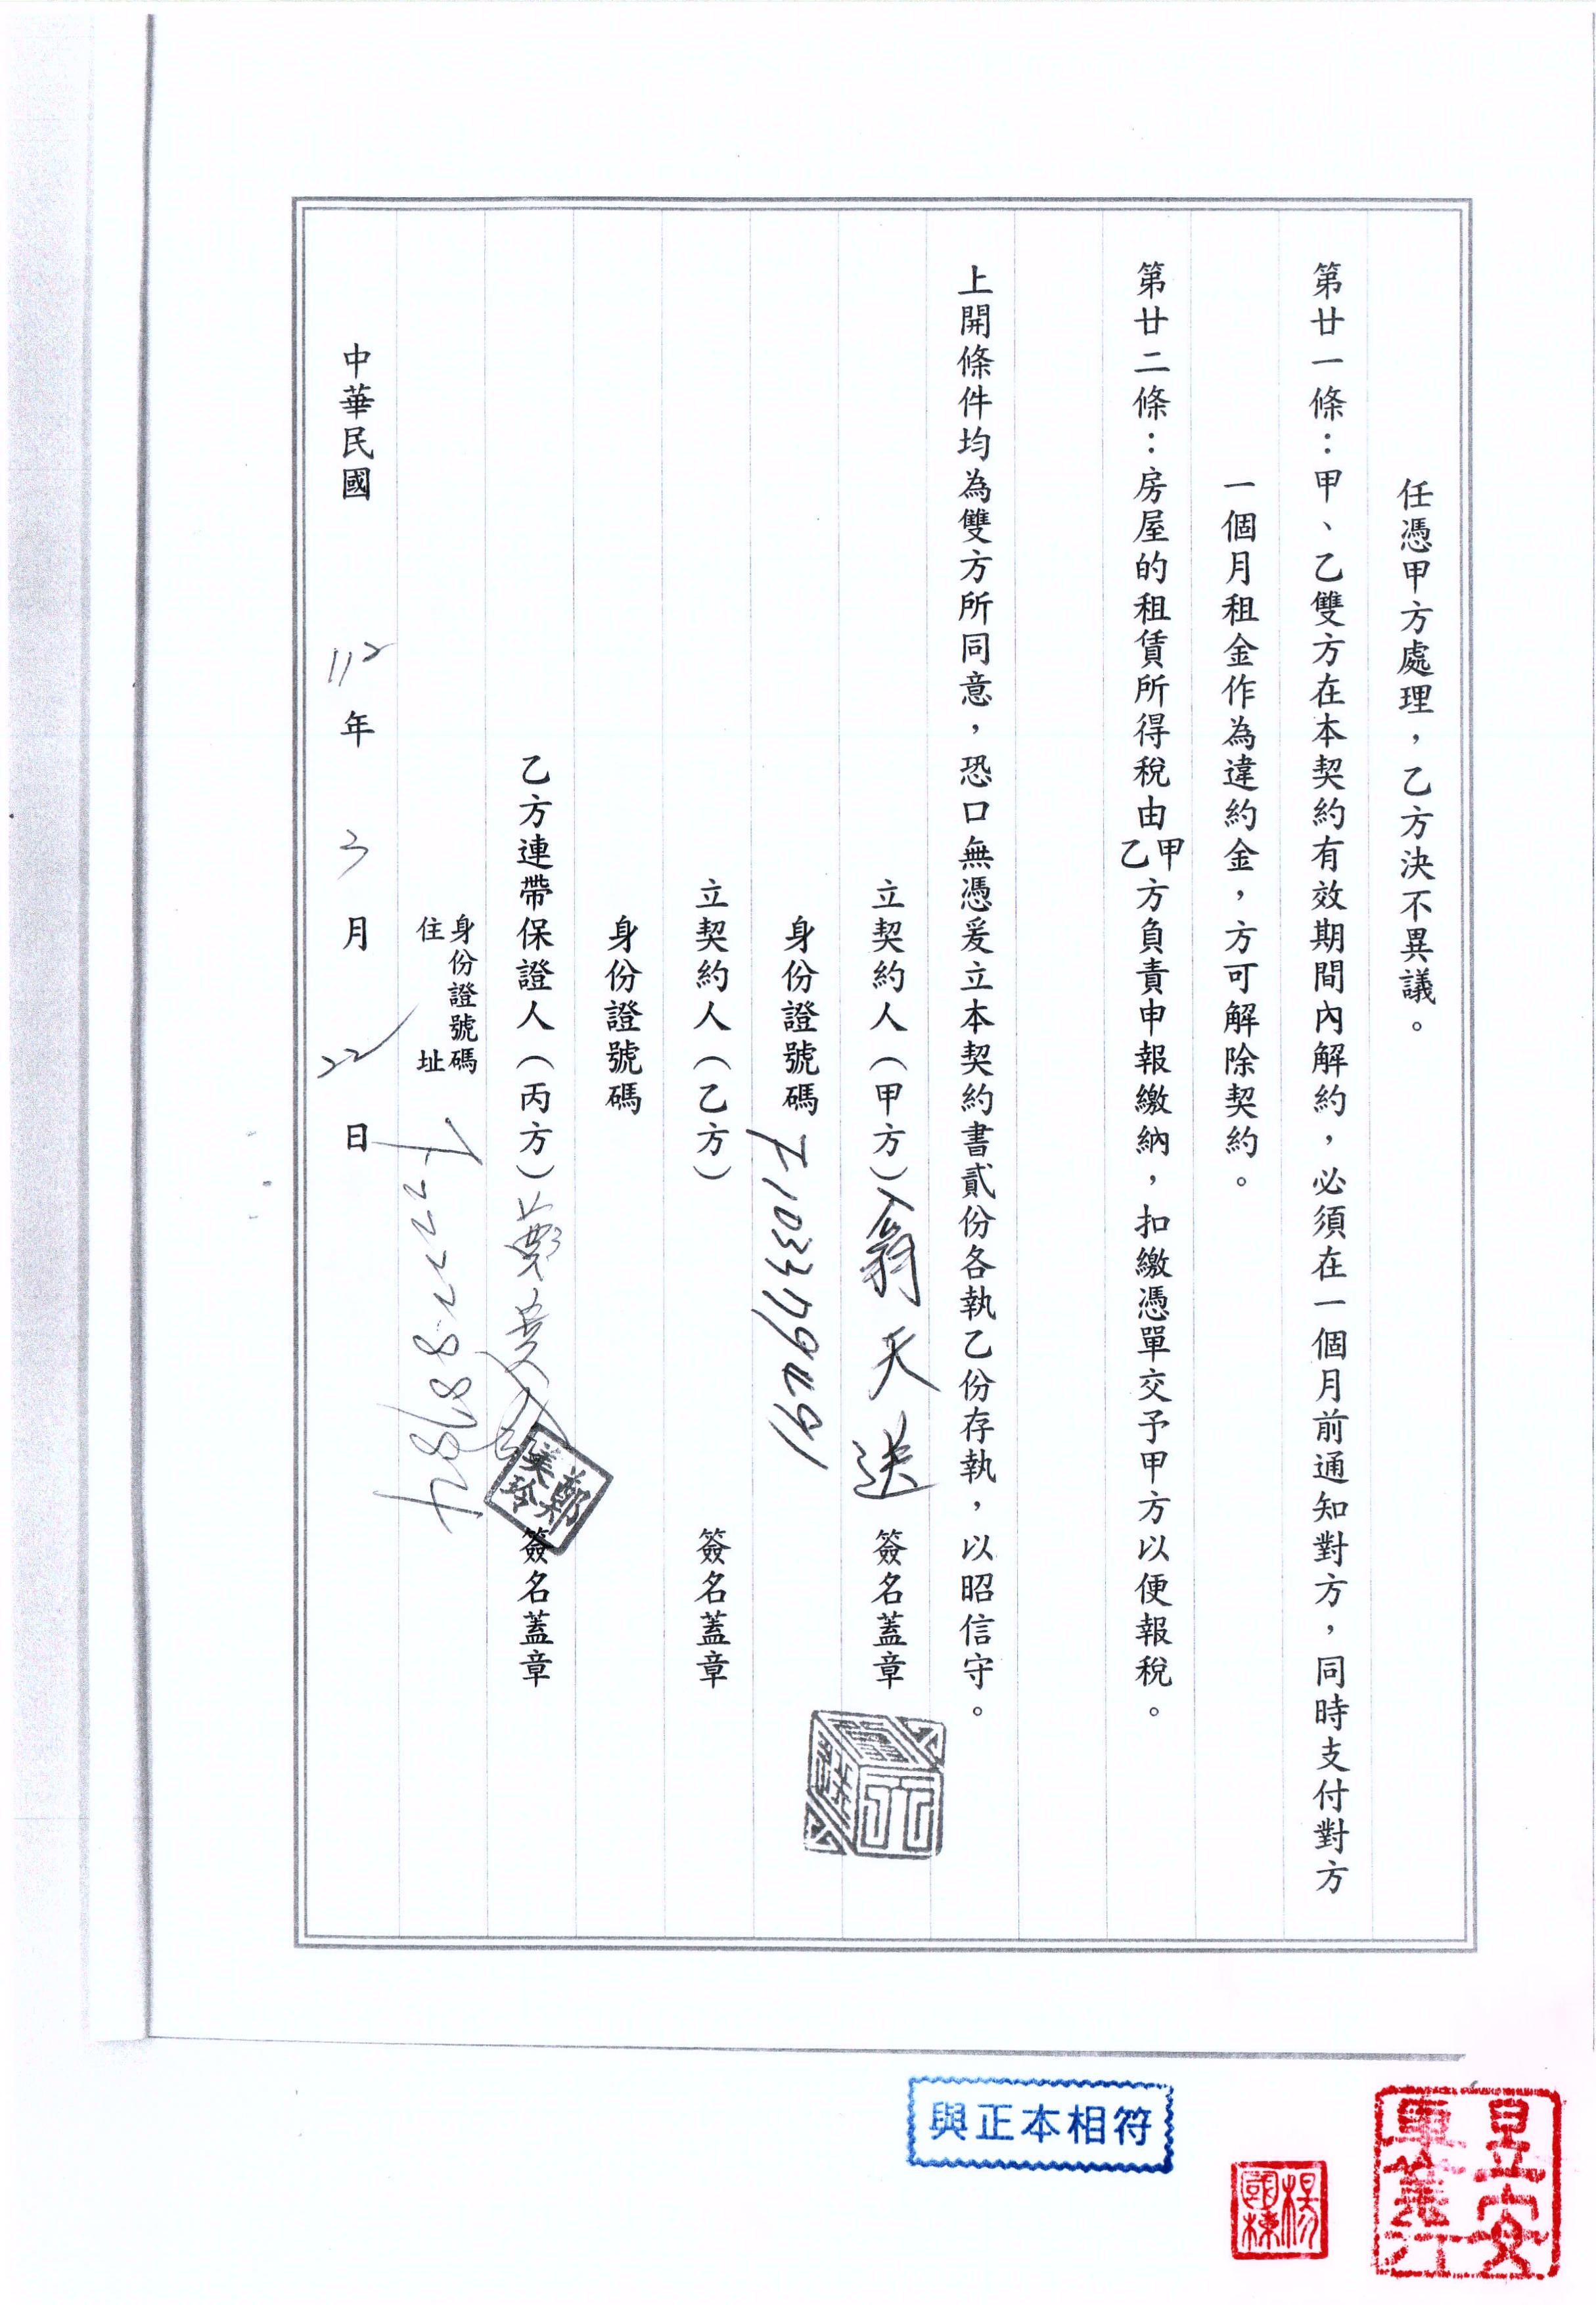 任憑甲方處理，乙方決不異議。
第廿一條：甲、乙雙方在本契約有效期間內解約，必須在一個月前通知對方，同時支付對方
一個月租金作為違約金，方可解除契約。
第廿二條：房屋的租賃所得稅由甲乙方負責申報繳納，扣繳憑單交予甲方以便報稅。
上開條件均為雙方所同意，恐口無憑爰立本契約書貳份各執乙份存執，以昭信守。
立契約人（甲方）翁天送 簽名蓋章
身份證號碼
立契約人（乙方） 簽名蓋章
身份證號碼
乙方連帶保證人（丙方）鄭美玲 簽名蓋章
鄭美玲
身份證號碼
住址
中華民國 112 年 3 月 22 日
與正本相符
楊國棟
昱安